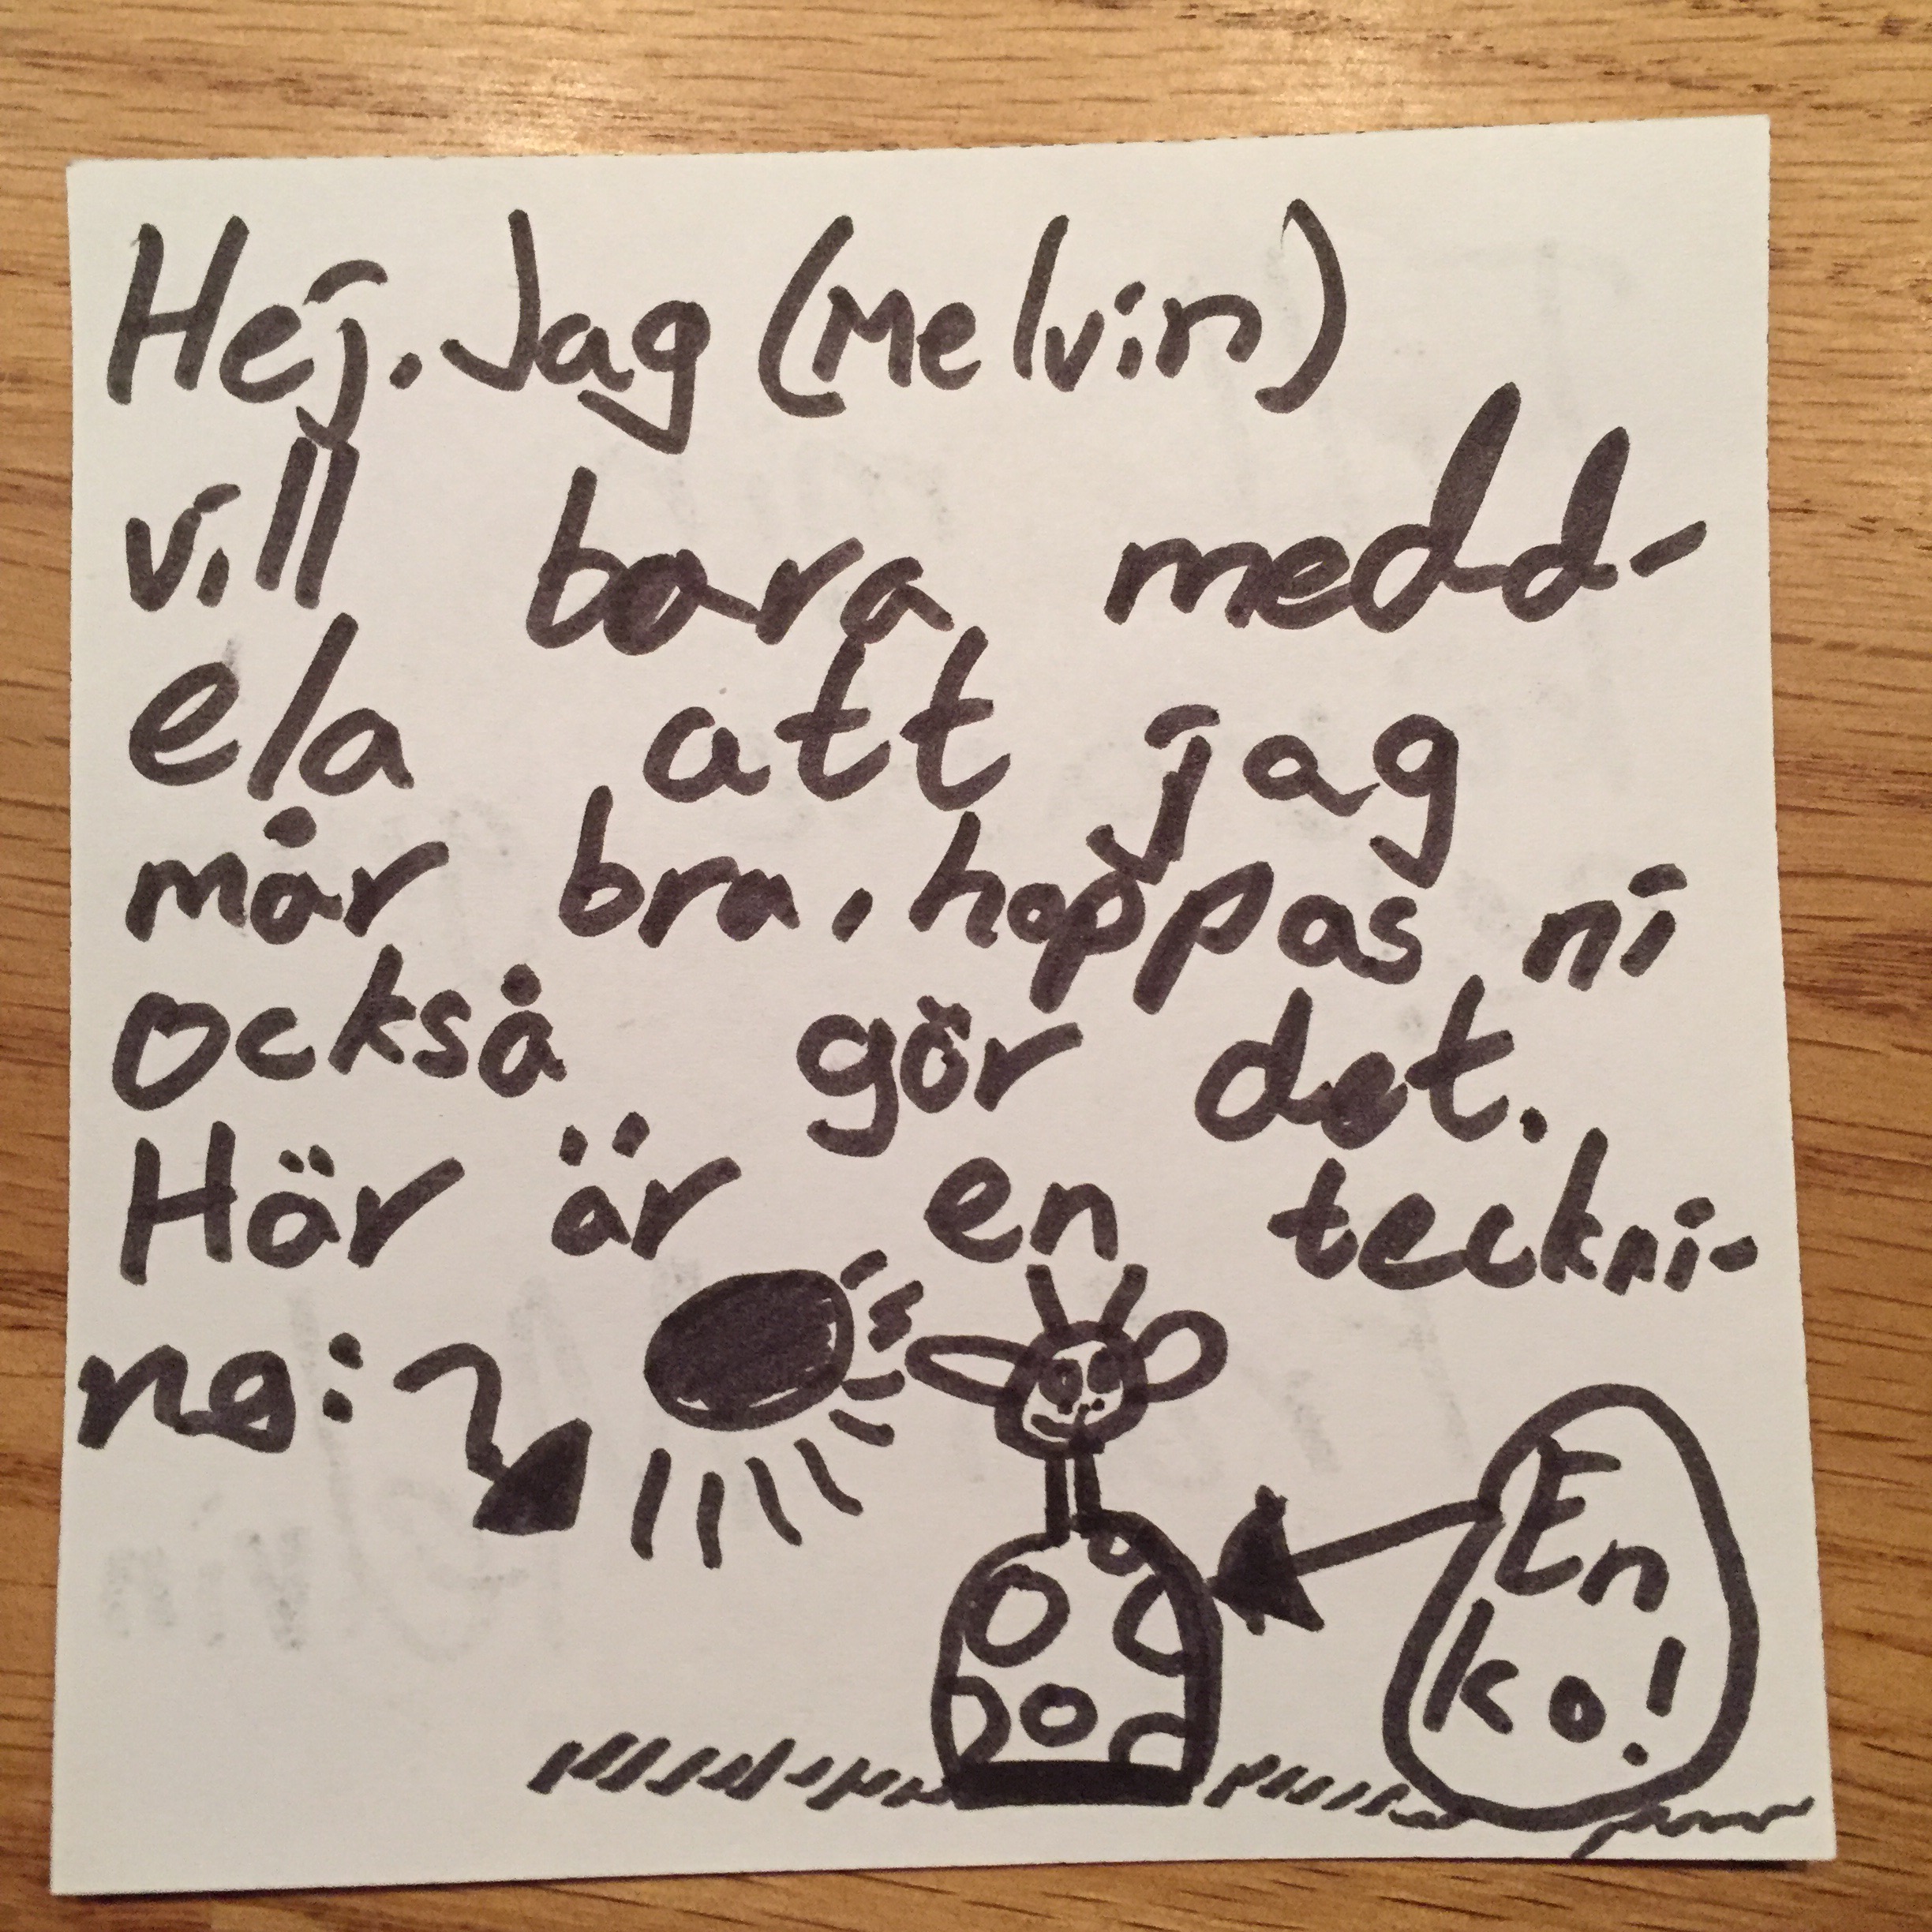 Hej. Jag (Melvin)
vill bara medd-
ela att jag
mår bra, hoppas ni
också gör det.
Här är en teckni-
ng:
En
ko!